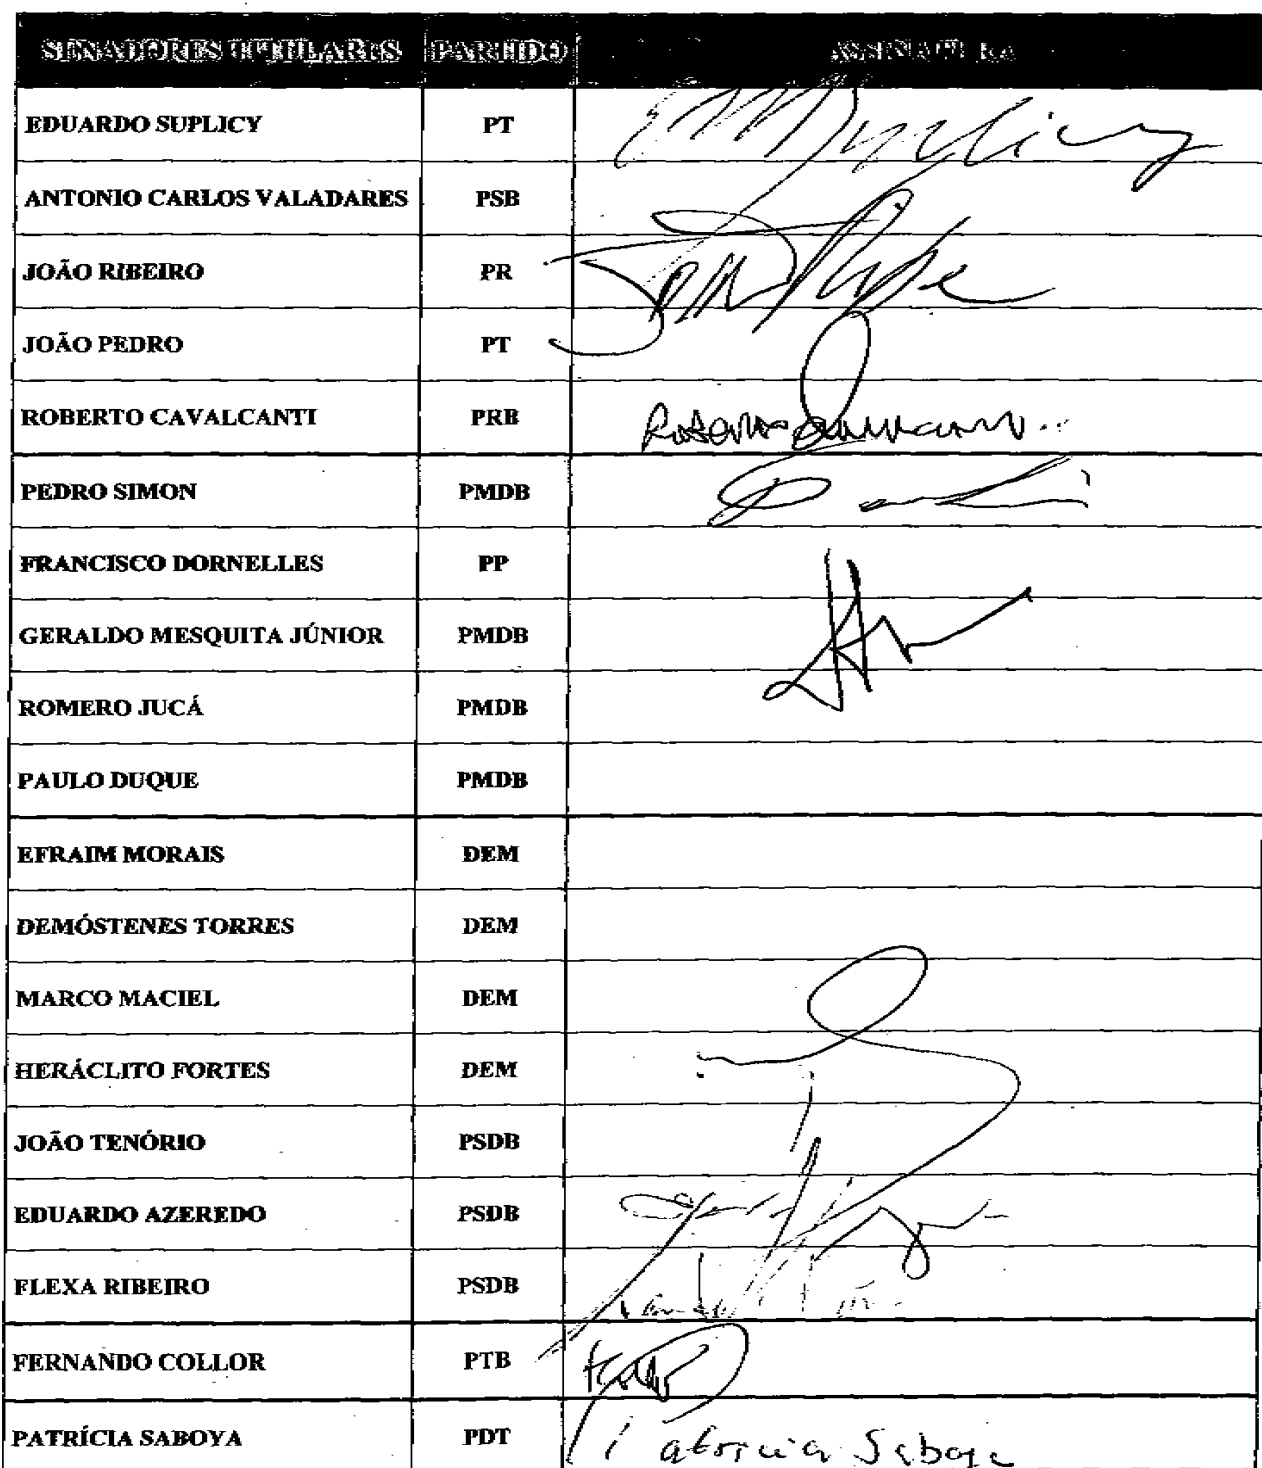 SENADORES TITULARES PARTIDO ASSINATURA
EDUARDO SUPLICY PT
ANTONIO CARLOS VALADARES PSB
JOÃO RIBEIRO PR
JOÃO PEDRO PT
ROBERTO CAVALCANTI PRB
PEDRO SIMON PMDB
FRANCISCO DORNELLES PP
GERALDO MESQUITA JÚNIOR PMDB
ROMERO JUCÁ PMDB
PAULO DUQUE PMDB
EFRAIM MORAIS DEM
DEMÓSTENES TORRES DEM
MARCO MACIEL DEM
HERÁCLITO FORTES DEM
JOÃO TENÓRIO PSDB
EDUARDO AZEREDO PSDB
FLEXA RIBEIRO PSDB
FERNANDO COLLOR PTB
PATRÍCIA SABOYA PDT Patricia Saboya